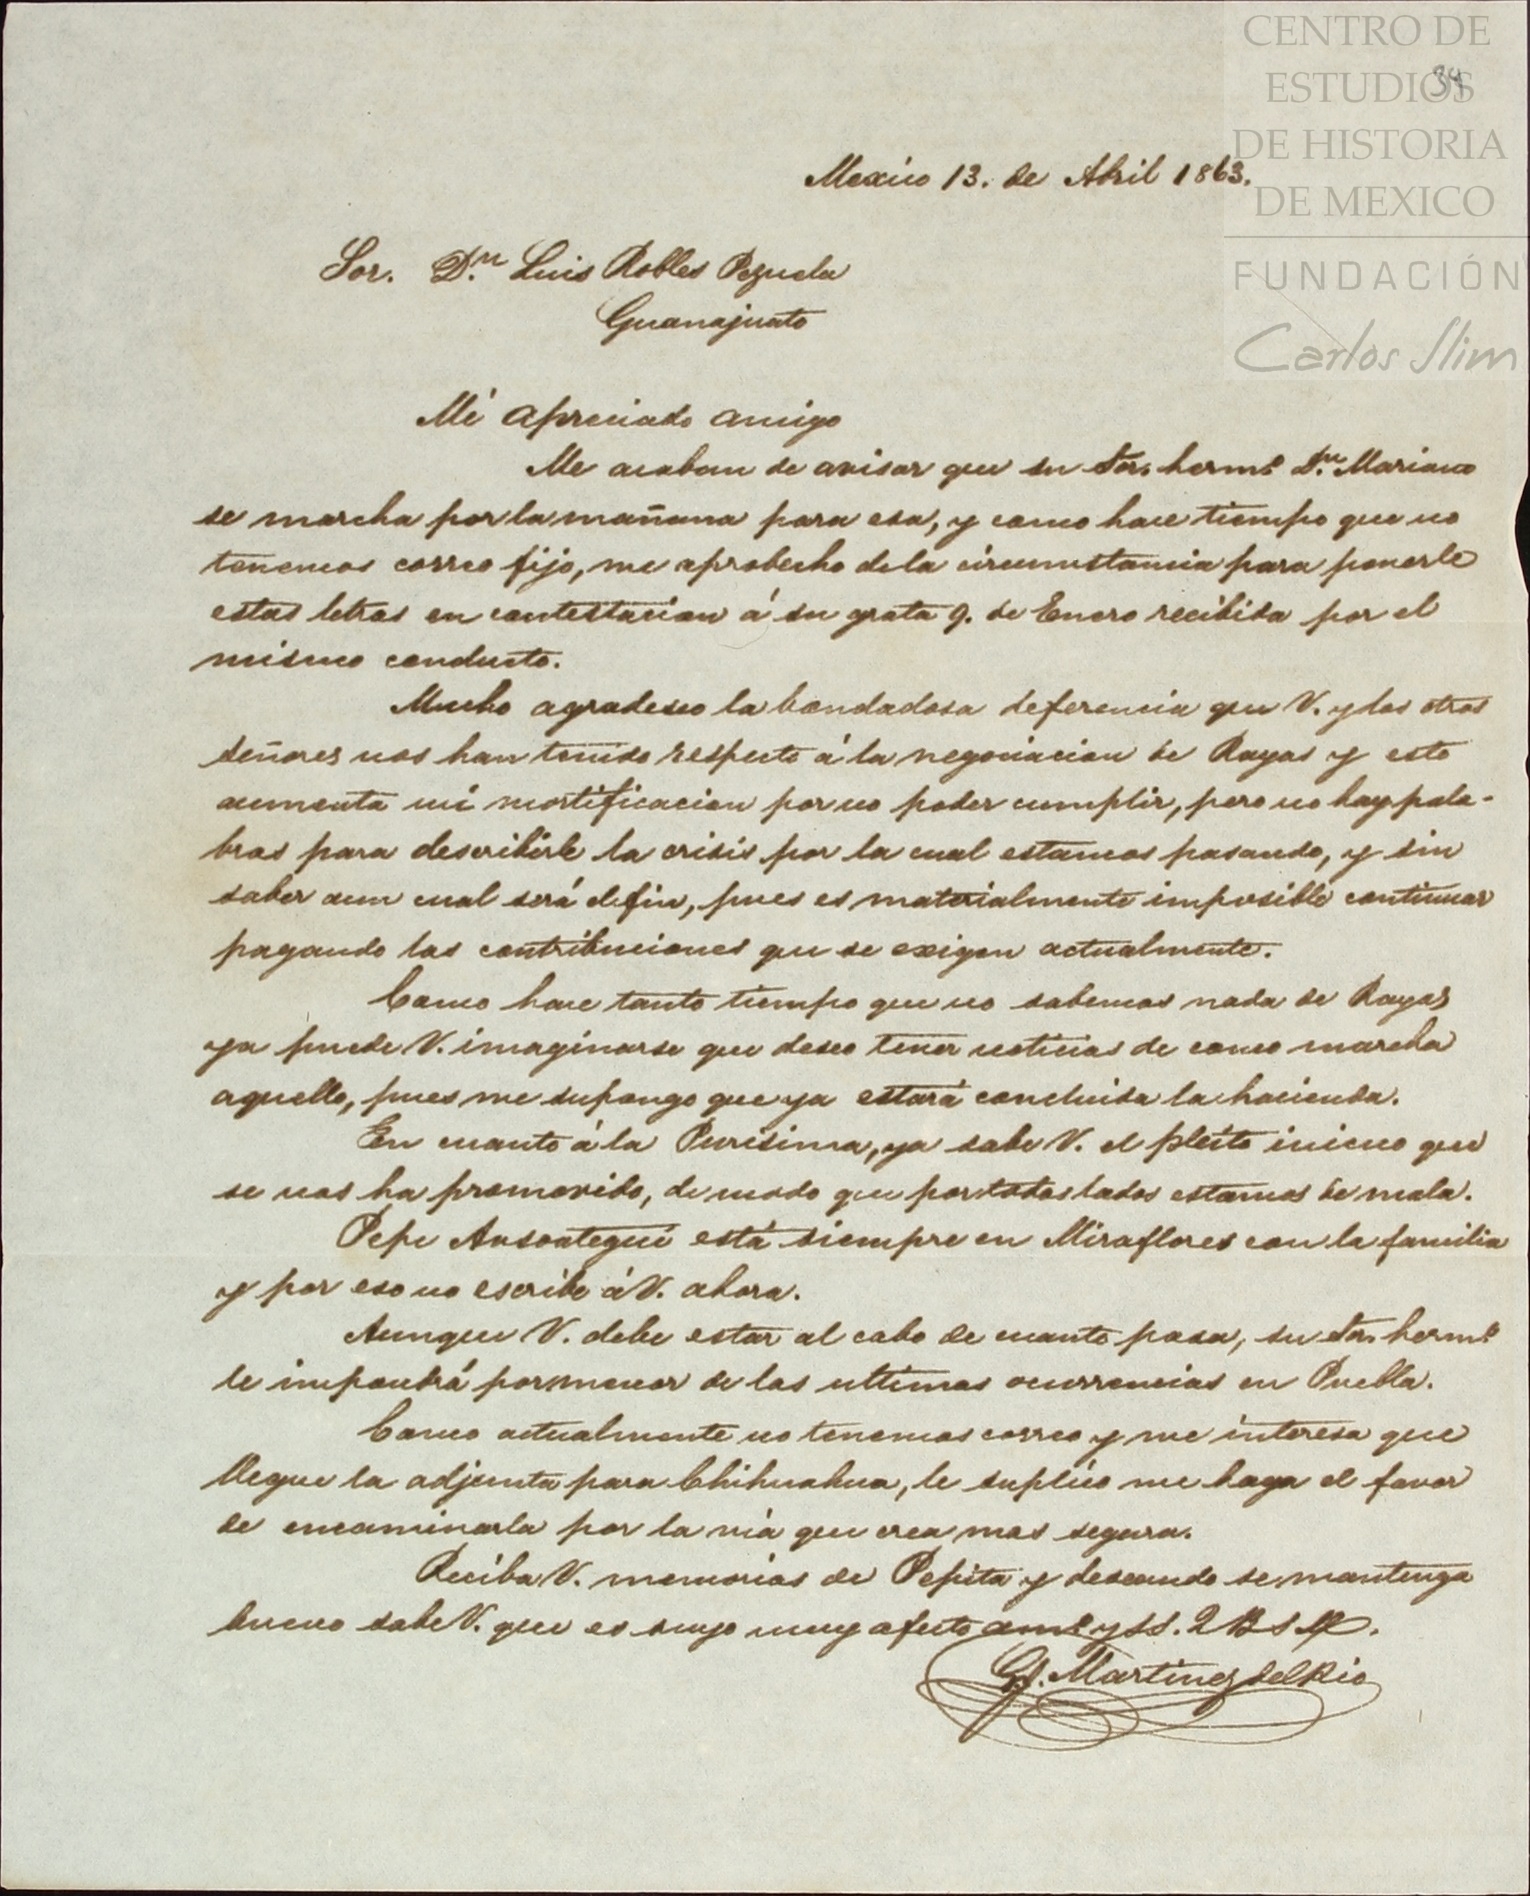 CENTRO DE
ESTUDIOS
DE HISTORIA
DE MEXICO
FUNDACIÓN
Carlos Slim
34
Mexico 13. de Abril 1863.
Sor. D.n Luis Robles Pezuela
Guanajuato
Mi apreciado amigo
Me acaban de avisar que su Sor. herm.o D.n Mariano
se marcha por la mañana para esa, y como hace tiempo que no
tenemos correo fijo, me aprobecho de la circunstancia para ponerle
estas letras en contestacion á su grata 9. de Enero recibida por el
mismo conducto.
Mucho agradesco la bondadosa deferencia que V. y los otros
señores nos han tenido respecto á la negociacion de Rayas y esto
aumenta mi mortificacion por no poder cumplir, pero no hay pala-
bras para describirle la crisis por la cual estamos pasando, y sin
saber aun cual será el fin, pues es materialmente imposible continuar
pagando las contribuciones que se exigen actualmente.
Como hace tanto tiempo que no sabemos nada de Rayas
ya puede V. imaginarse que deseo tener noticias de como marcha
aquello, pues me supongo que ya estará concluida la hacienda.
En cuanto á la Purisima, ya sabe V. el pleito inicuo que
se nos ha promovido, de modo que por todos lados estamos de mala.
Pepe Ansoategui está siempre en Miraflores con la familia
y por eso no escribe á V. ahora.
Aunque V. debe estar al cabo de cuanto pasa, su Sor. herm.o
le impondrá por menor de las ultimas ocurrencias en Puebla.
Como actualmente no tenemos correo y me interesa que
llegue la adjunta para Chihuahua, le suplico me haga el favor
de encaminarla por la via que crea mas segura.
Reciba V. memorias de Pepita y deseando se mantenga
bueno sabe V. que es suyo muy afecto am.o y SS. Q B S M.
G. Martinez del Rio